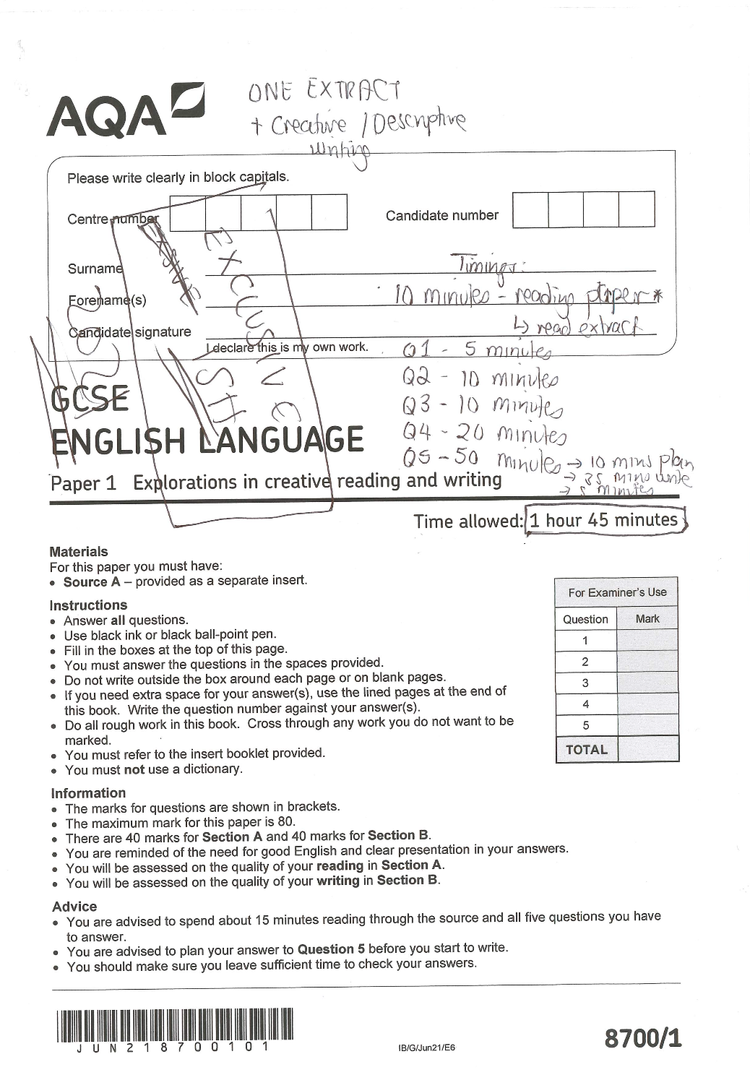 AQA
ONE EXTRACT
+ Creative / Descriptive
writing
Please write clearly in block capitals.
Centre number
Candidate number
Surname
Timings:
Forename(s)
10 minutes - reading paper *
Candidate signature
↳ read extract
I declare this is my own work.
EXCLUSIVE
SH
Q1 - 5 minutes
Q2 - 10 minutes
Q3 - 10 minutes
Q4 - 20 minutes
Q5 - 50 minutes → 10 mins plan
→ 35 mins write
→ 5 minutes
GCSE
ENGLISH LANGUAGE
Paper 1 Explorations in creative reading and writing
Time allowed: 1 hour 45 minutes
Materials
For this paper you must have:
• Source A – provided as a separate insert.
Instructions
• Answer all questions.
• Use black ink or black ball-point pen.
• Fill in the boxes at the top of this page.
• You must answer the questions in the spaces provided.
• Do not write outside the box around each page or on blank pages.
• If you need extra space for your answer(s), use the lined pages at the end of
this book. Write the question number against your answer(s).
• Do all rough work in this book. Cross through any work you do not want to be
marked.
• You must refer to the insert booklet provided.
• You must not use a dictionary.
For Examiner's Use
Question Mark
1
2
3
4
5
TOTAL
Information
• The marks for questions are shown in brackets.
• The maximum mark for this paper is 80.
• There are 40 marks for Section A and 40 marks for Section B.
• You are reminded of the need for good English and clear presentation in your answers.
• You will be assessed on the quality of your reading in Section A.
• You will be assessed on the quality of your writing in Section B.
Advice
• You are advised to spend about 15 minutes reading through the source and all five questions you have
to answer.
• You are advised to plan your answer to Question 5 before you start to write.
• You should make sure you leave sufficient time to check your answers.
JUN218700101
IB/G/Jun21/E6
8700/1